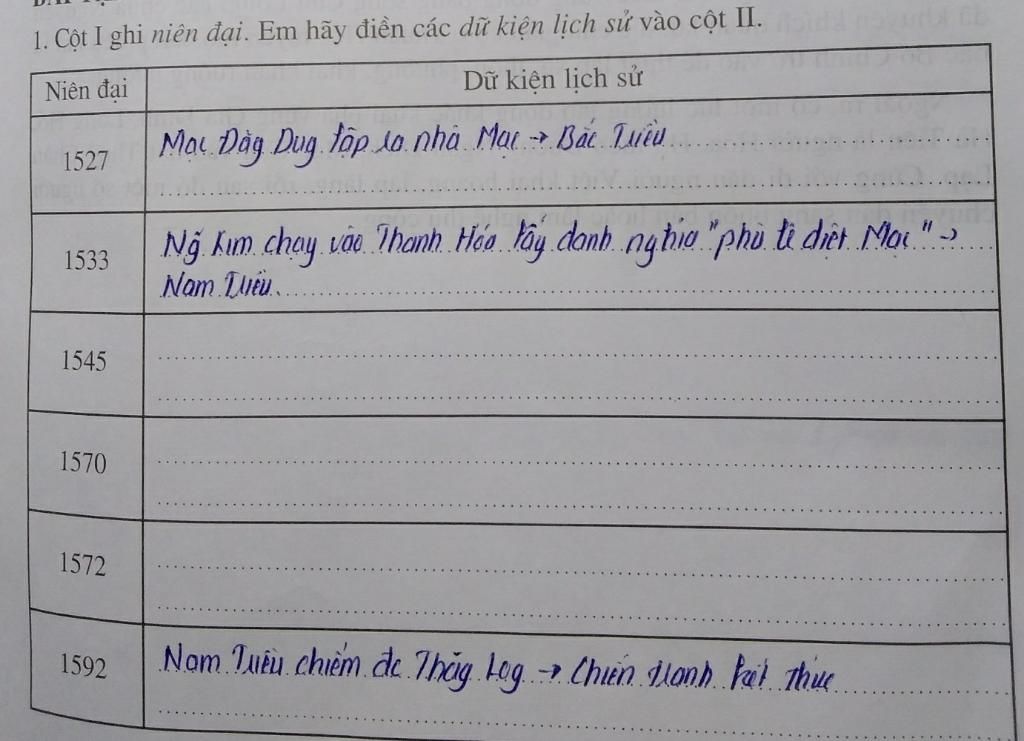 1. Cột I ghi niên đại. Em hãy điền các dữ kiện lịch sử vào cột II.
Niên đại Dữ kiện lịch sử
1527 Mạc Đăg Dug lập ra nhà Mạc → Bắc Triều
1533 Ng~ Kim chạy vào Thanh Hóa lấy danh nghĩa "phù lê diệt Mạc" →
Nam Triều
1545
1570
1572
1592 Nam Triều chiếm đc Thăg Log → Chiến tranh kết thúc